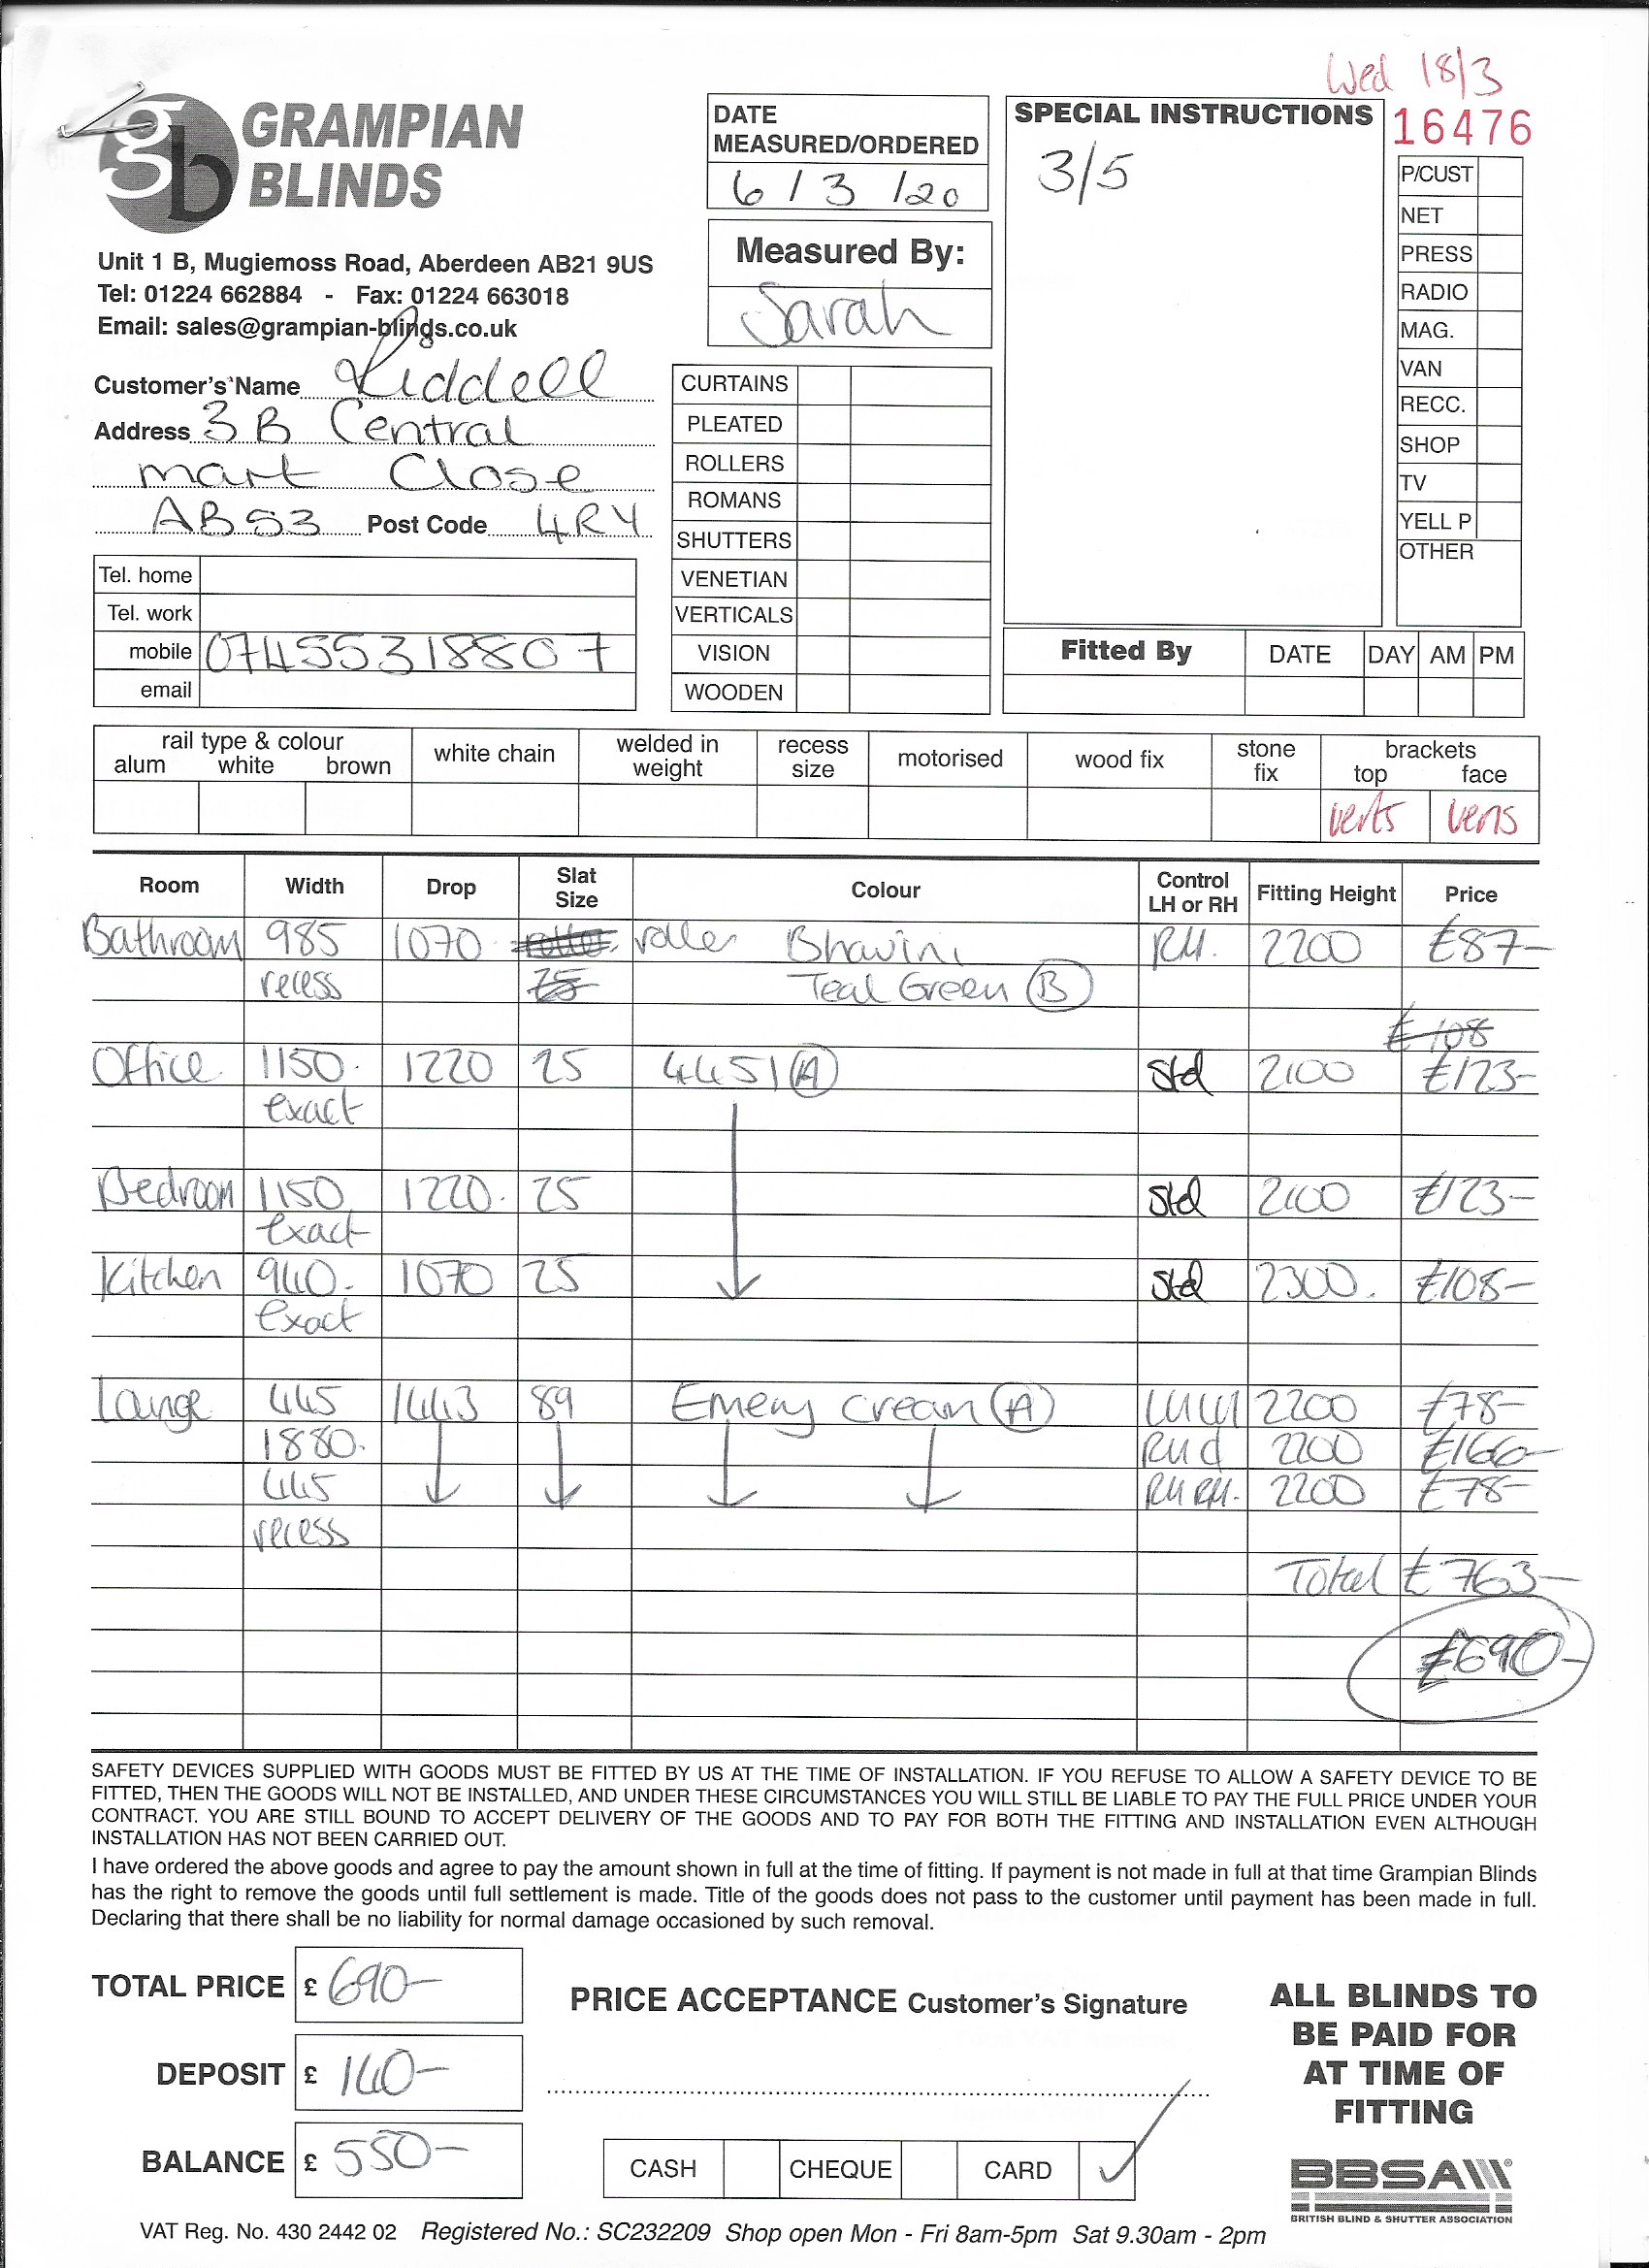 Wed 18/3
16476
gb GRAMPIAN
BLINDS
Unit 1 B, Mugiemoss Road, Aberdeen AB21 9US
Tel: 01224 662884 - Fax: 01224 663018
Email: sales@grampian-blinds.co.uk
Customer's Name Liddell
Address 3B Central
mart Close
AB53 Post Code 4RY
Tel. home
Tel. work
mobile 07455318807
email
DATE
MEASURED/ORDERED
6 / 3 /20
Measured By:
Sarah
CURTAINS
PLEATED
ROLLERS
ROMANS
SHUTTERS
VENETIAN
VERTICALS
VISION
WOODEN
SPECIAL INSTRUCTIONS
3/5
P/CUST
NET
PRESS
RADIO
MAG.
VAN
RECC.
SHOP
TV
YELL P
OTHER
Fitted By DATE DAY AM PM
rail type & colour
alum white brown
white chain
welded in
weight
recess
size
motorised
wood fix
stone
fix
brackets
top face
verts vens
Room Width Drop Slat Size Colour Control LH or RH Fitting Height Price
Bathroom 985 1070 roller Bhavini RH. 2200 £87-
recess 25 Teal Green (B)
£108
Office 1150. 1220 25 4451 (A) Std 2100 £123-
exact
Bedroom 1150 1220. 25 Std 2100 £123-
exact
Kitchen 940. 1070 25 Std 2300. £108-
exact
Lounge 445 1443 89 Emery cream (A) LHLH 2200 £78-
1880. RHd 2200 £166-
445 RHRH. 2200 £78-
recess
Total £763-
£690-
SAFETY DEVICES SUPPLIED WITH GOODS MUST BE FITTED BY US AT THE TIME OF INSTALLATION. IF YOU REFUSE TO ALLOW A SAFETY DEVICE TO BE
FITTED, THEN THE GOODS WILL NOT BE INSTALLED, AND UNDER THESE CIRCUMSTANCES YOU WILL STILL BE LIABLE TO PAY THE FULL PRICE UNDER YOUR
CONTRACT. YOU ARE STILL BOUND TO ACCEPT DELIVERY OF THE GOODS AND TO PAY FOR BOTH THE FITTING AND INSTALLATION EVEN ALTHOUGH
INSTALLATION HAS NOT BEEN CARRIED OUT.
I have ordered the above goods and agree to pay the amount shown in full at the time of fitting. If payment is not made in full at that time Grampian Blinds
has the right to remove the goods until full settlement is made. Title of the goods does not pass to the customer until payment has been made in full.
Declaring that there shall be no liability for normal damage occasioned by such removal.
TOTAL PRICE £ 690-
DEPOSIT £ 140-
BALANCE £ 550-
PRICE ACCEPTANCE Customer's Signature
CASH CHEQUE CARD ✓
ALL BLINDS TO
BE PAID FOR
AT TIME OF
FITTING
BBSA
BRITISH BLIND & SHUTTER ASSOCIATION
VAT Reg. No. 430 2442 02 Registered No.: SC232209 Shop open Mon - Fri 8am-5pm Sat 9.30am - 2pm